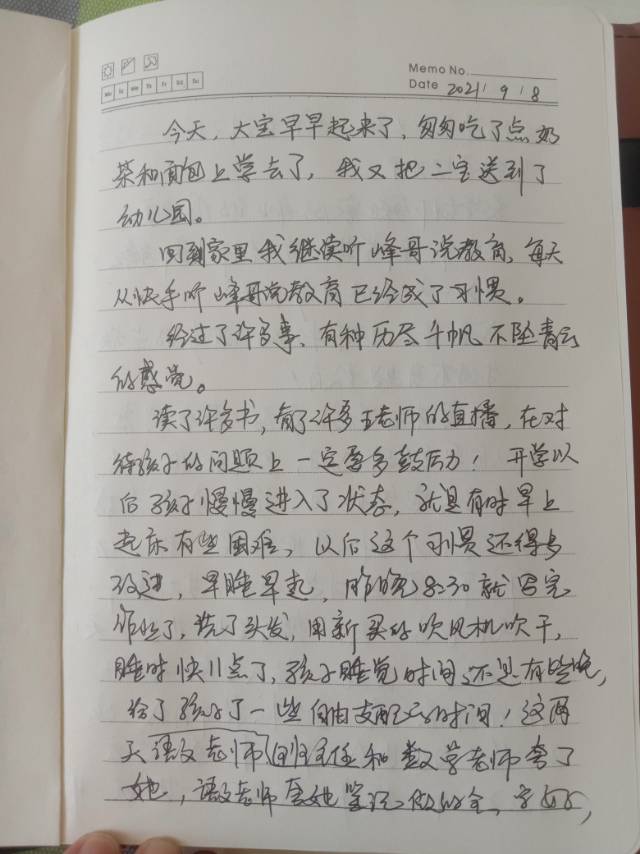 Memo No.
Mo Tu We Th Fr Sa Su
Date 2021 / 9 / 8
今天，大宝早早起来了，匆匆吃了点奶
茶和面包上学去了，我又把二宝送到了
幼儿园。
回到家里我继续听峰哥说教育，每天
从快手听峰哥说教育已经成了习惯。
经过了许多事、有种历尽千帆不坠青云
的感觉。
读了许多书，看了许多王老师的直播，在对
待孩子的问题上一定要多鼓励！开学以
后孩子慢慢进入了状态，就是有时早上
起床有些困难，以后这个习惯还得多
改进，早睡早起，昨晚8:30就写完
作业了，洗了头发，用新买的吹风机吹干，
睡时快11点了，孩子睡觉时间还是有些晚，
给了孩子了一些自由支配的时间！这两
天语文老师(班主任和数学老师夸了
她，语文老师夸她笔记做的全，字好，